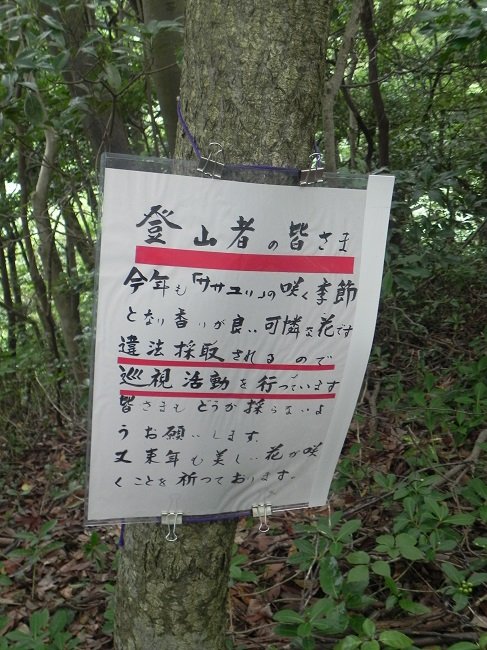 登山者の皆さま
今年も「ササユリ」の咲く季節
となり香りが良い可憐な花です
違法採取されるので
巡視活動を行っています
皆さまもどうか採らないよ
うお願いします.
又来年も美しい花が咲
くことを祈っております。